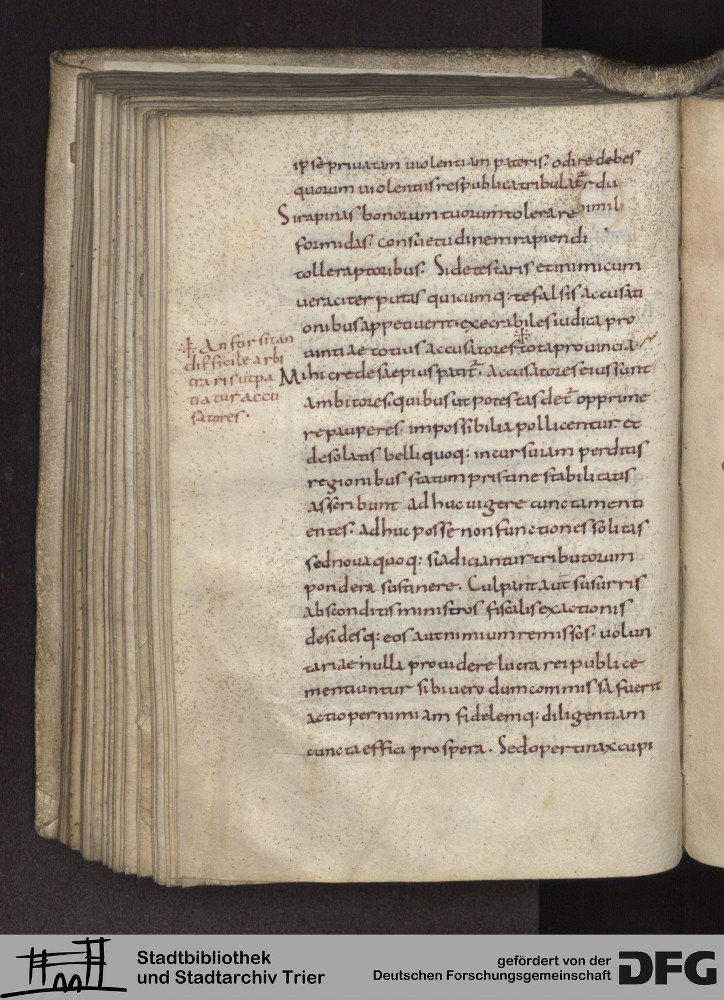 ipse privatam violentiam pateris. odire debes
quorum violentiis respublica tribulat̄r
Si rapinas bonorum tuorum tolerare
formidas. consuetudinem rapiendi
tolle raptoribus. Si detestaris et inimicum
veraciter putas quicumq: te falsis accusati
onibus appetiverit. execrabiles iudica pro
vintiae totius accusatores tota provincia
Mihi crede saepius patit̄. accusatores eius sunt
ambitores. quibus ut potestas det̄ opprime
re pauperes. impossibilia pollicentur et
desolatis belli quoq: incursu iam perditis
regionibus statum pristine stabilitatis
asseribunt adhuc vigere cuncta menti
entes. adhuc posse non functiones solitas
sed nova quoq: si adiciantur tributorum
pondera sustinere. Culpant aut̄ susurris
absconditis ministros fiscalis exactionis
desidesq: eos aut nimium remissos. volun
tariae nulla providere lucra rei publice
mentiuntur sibi vero dum commissa fuerit
actio pernimiam fidelemq: diligentiam
cuncta effici prospera. Sed o pertinax cupi
An forsitan
difficile arbi
traris ut pa
tiatur accu
satores.
Stadtbibliothek
und Stadtarchiv Trier
gefördert von der
Deutschen Forschungsgemeinschaft
DFG